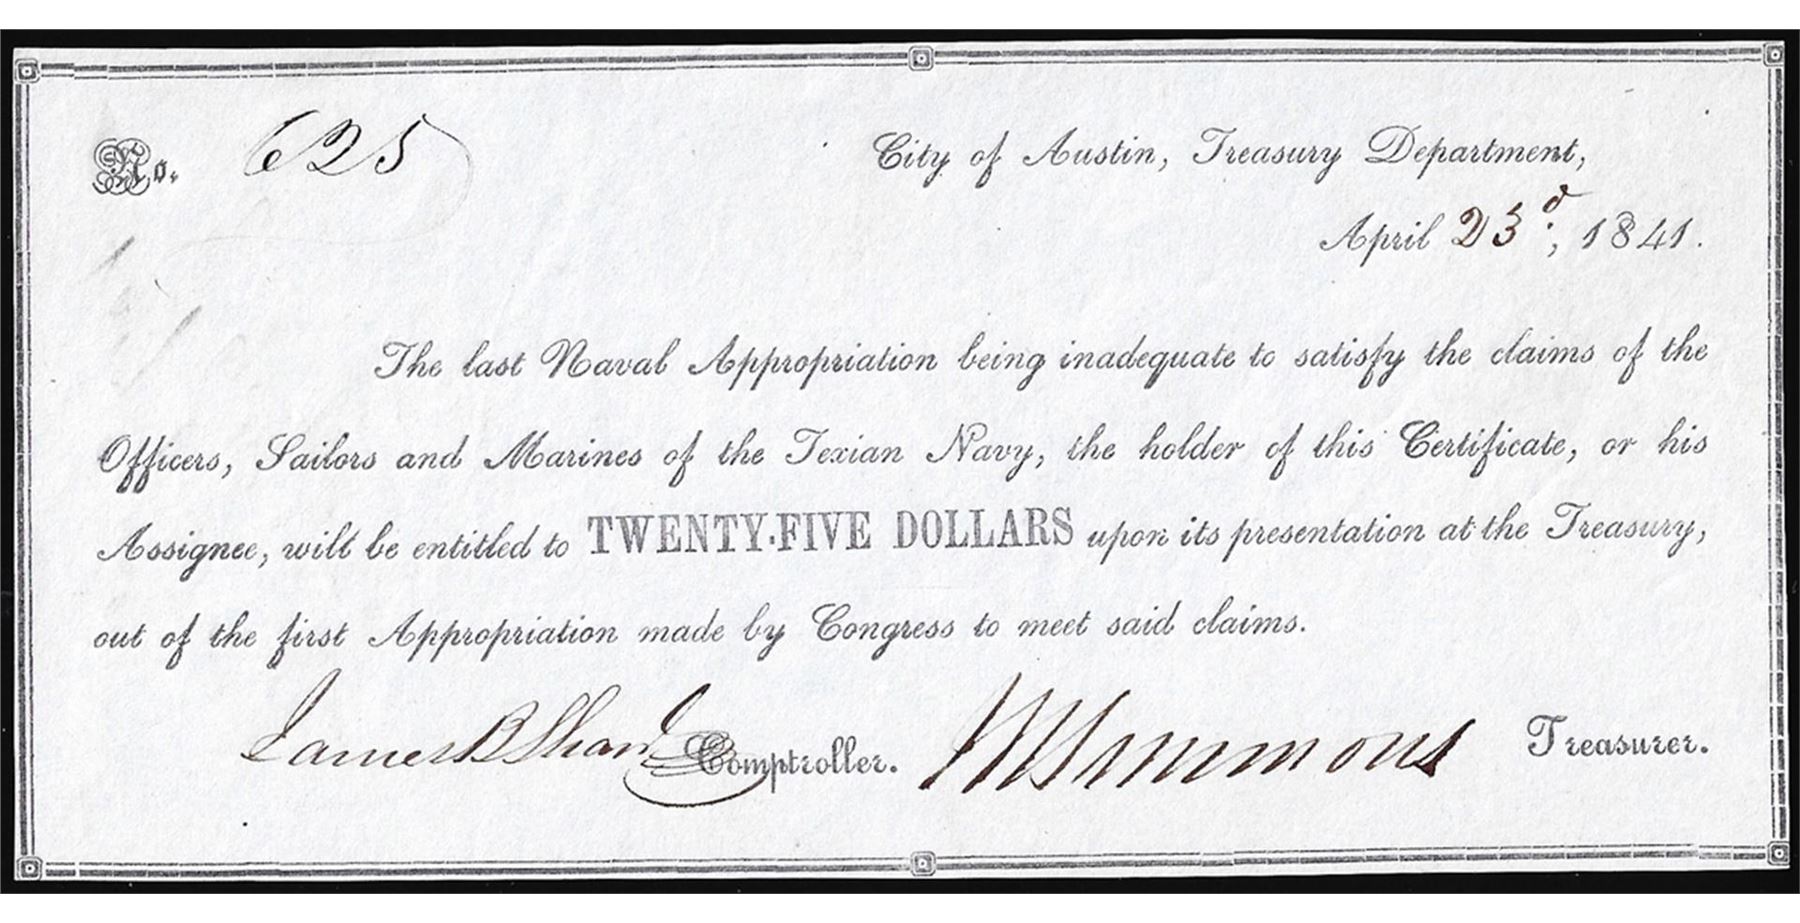 No. 625
City of Austin, Treasury Department,
April 23d, 1841.
The last Naval Appropriation being inadequate to satisfy the claims of the
Officers, Sailors and Marines of the Texian Navy, the holder of this Certificate, or his
Assignee, will be entitled to TWENTY-FIVE DOLLARS upon its presentation at the Treasury,
out of the first Appropriation made by Congress to meet said claims.
James B Shaw Comptroller. Simmons Treasurer.